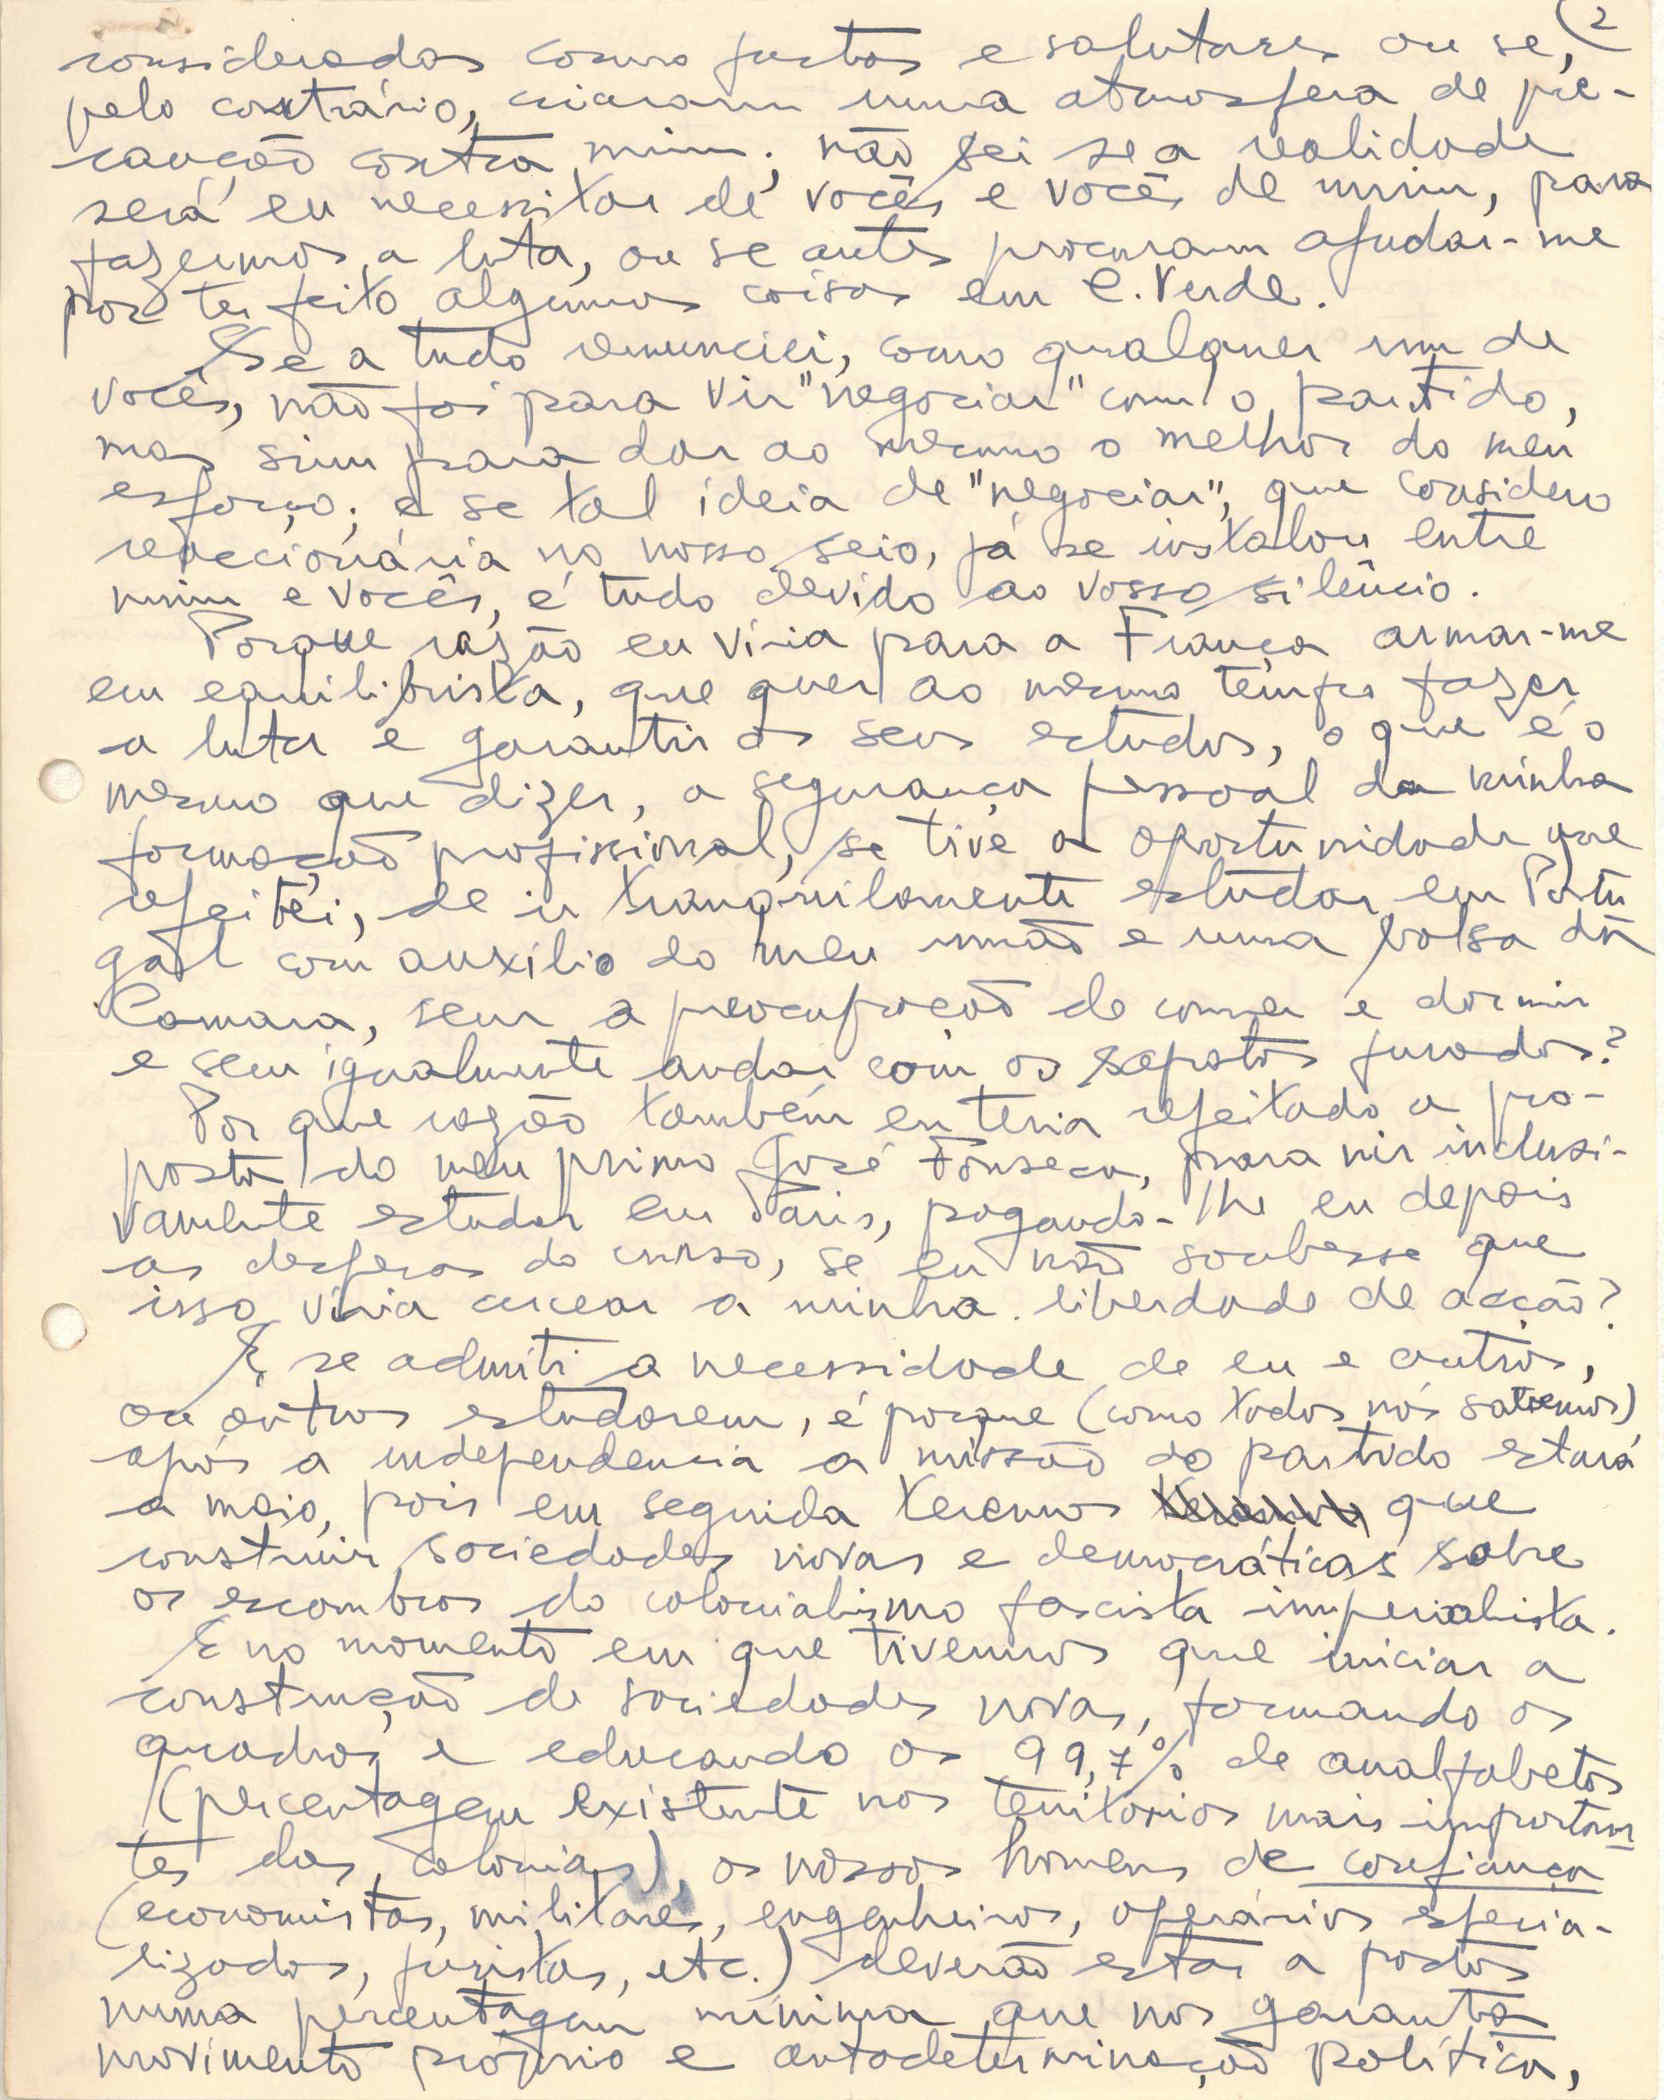 2
consideradas como justas e salutares ou se,
pelo contrário, criaram uma atmosfera de pre-
caução contra mim; não sei se a realidade
será eu necessitar de vocês e vocês de mim, para
fazermos a luta, ou se antes procuram ajudar-me
por ter feito algumas coisas em C. Verde.
Se a tudo renunciei, como qualquer um de
vocês, não foi para vir "negociar" com o partido,
mas sim para dar ao mesmo o melhor do meu
esforço; e se tal ideia de "negociar", que considero
reaccionária no nosso seio, já se instalou entre
mim e vocês, é tudo devido ao vosso silêncio.
Porque razão eu viria para a França armar-me
em equilibrista, que quer ao mesmo tempo fazer
a luta e garantir os seus estudos, o que é o
mesmo que dizer, a segurança pessoal da minha
formação profissional, se tive a oportunidade que
rejeitei, de ir tranquilamente estudar em Portu
gal com auxílio do meu irmão e uma bolsa da
Camara, sem a preocupação de comer e dormir
e sem igualmente andar com os sapatos furados?
Por que razão também eu teria rejeitado a pro-
posta do meu primo José Fonseca, para vir inclusi-
vamente estudar em Paris, pagando-lhe eu depois
as despesas do curso, se eu não soubesse que
isso viria cercear a minha liberdade de acção?
E se admiti a necessidade de eu e outros,
ou outros estudarem, é porque (como todos nós sabemos)
após a independencia a missão do partido estará
a meio, pois em seguida teremos que
construir sociedades novas e democráticas sobre
os escombros do colonialismo fascista imperialista.
E no momento em que tivermos que iniciar a
construção de sociedades novas, formando os
quadros e educando os 99,7% de analfabetos
(percentagem existente nos territórios mais importan
tes das colonias), os nossos homens de confiança
(economistas, militares, engenheiros, operários especia-
lizados, juristas, etc.) deverão estar a postos
numa percentagem mínima que nos garanta
movimento próprio e autodeterminação política,